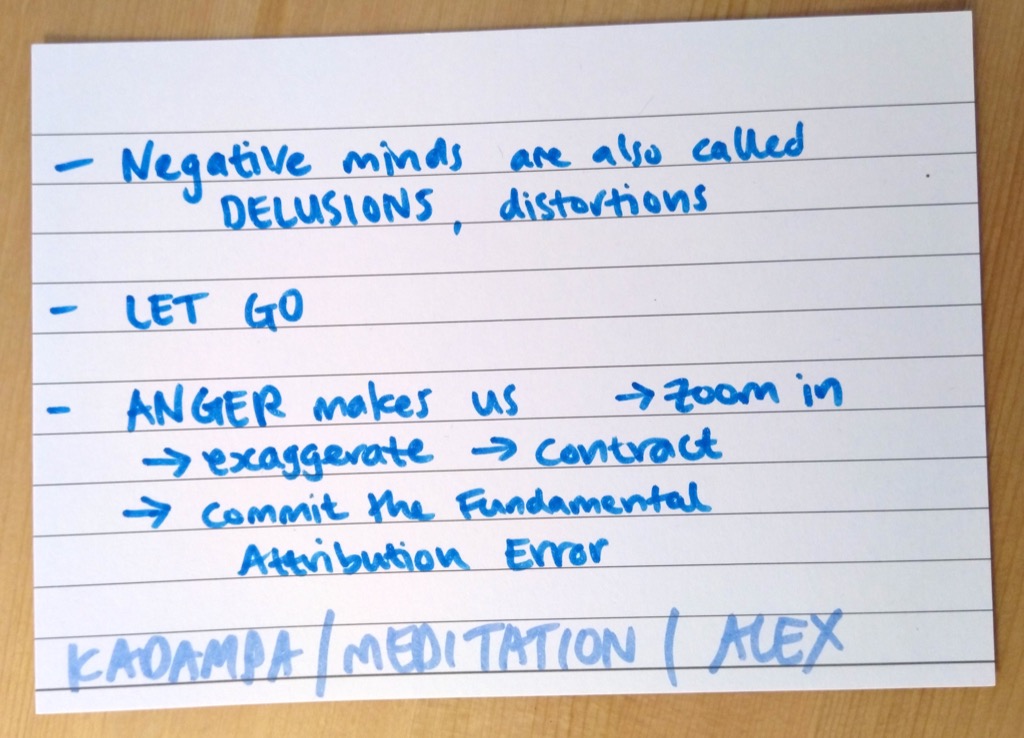 - Negative minds are also called
DELUSIONS, distortions
- LET GO
- ANGER makes us → zoom in
→ exaggerate → contract
→ commit the Fundamental
Attribution Error
KADAMPA / MEDITATION / ALEX